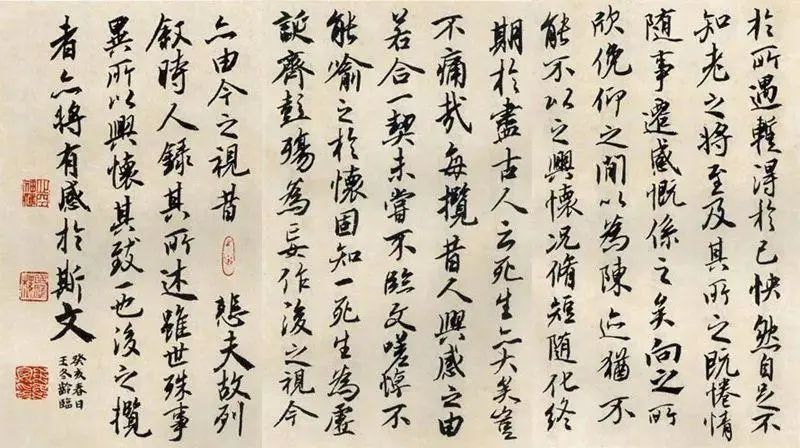 於所遇暫得於己怏然自足不
知老之將至及其所之既惓情
随事遷感慨係之矣向之所
欣俛仰之閒以為陳迹猶不
能不以之興懷況脩短随化終
期於盡古人云死生亦大矣豈
不痛哉每攬昔人興感之由
若合一契未嘗不臨文嗟悼不
能喻之於懷固知一死生為虛
誕齊彭殤為妄作後之視今
亦由今之視昔 悲夫故列
敘時人錄其所述雖世殊事
異所以興懷其致一也後之攬
者亦將有感於斯文
癸亥春日
王冬齡臨